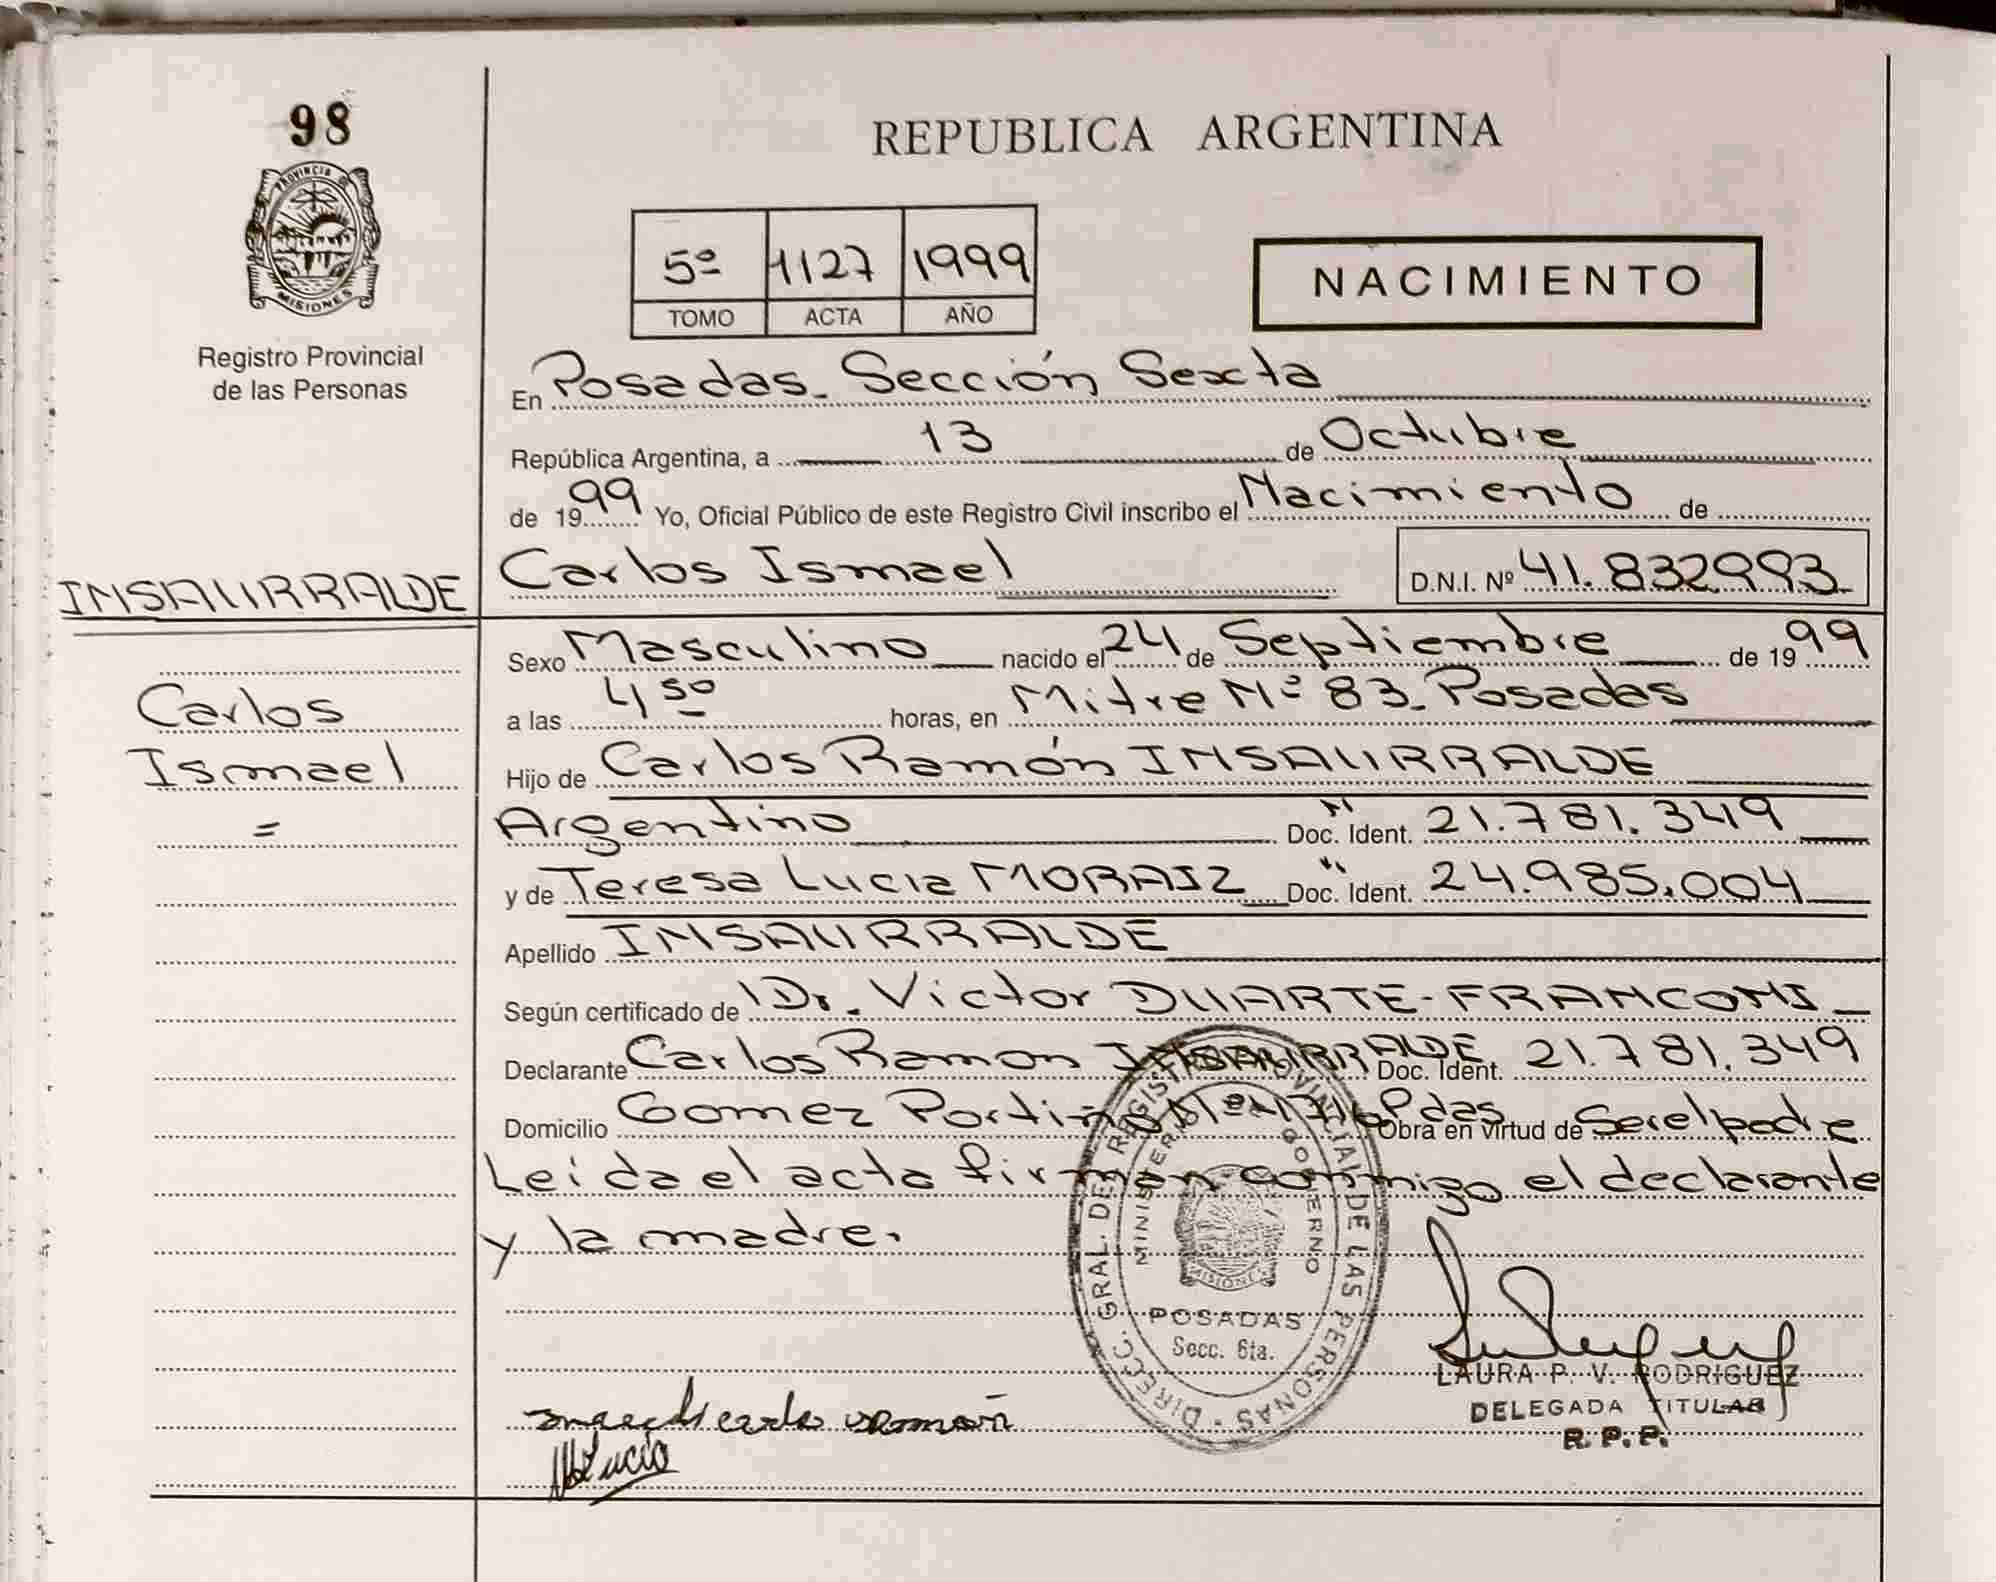 98
PROVINCIA DE
MISIONES
Registro Provincial
de las Personas
REPUBLICA ARGENTINA
5º 1127 1999
TOMO ACTA AÑO
NACIMIENTO
En Posadas. Sección Sexta
República Argentina, a 13 de Octubre
de 1999 Yo, Oficial Público de este Registro Civil inscribo el Nacimiento de
Carlos Ismael D.N.I. Nº 41.832993
INSAURRALDE
Carlos
Ismael
=
Sexo Masculino nacido el 24 de Septiembre de 1999
a las 4 50 horas, en Mitre Nº 83. Posadas
Hijo de Carlos Ramón INSAURRALDE
Argentino Doc. Ident. 21.781.349
y de Teresa Lucia MORAIZ Doc. Ident. 24.985.004
Apellido INSAURRALDE
Según certificado de Dr. Victor DUARTE-FRANCONI
Declarante Carlos Ramon INSAURRALDE Doc. Ident. 21.781.349
Domicilio Gomez Portiño Nº Pdas Obra en virtud de Ser el padre
Leída el acta firman conmigo el declarante
y la madre.
DIREC. GRAL. DEL REGISTRO PROVINCIAL DE LAS PERSONAS
MINISTERIO GOBIERNO
MISIONES
POSADAS
Secc. 6ta.
LAURA P. V. RODRIGUEZ
DELEGADA TITULAR
R. P. P.
ramon
Lucia